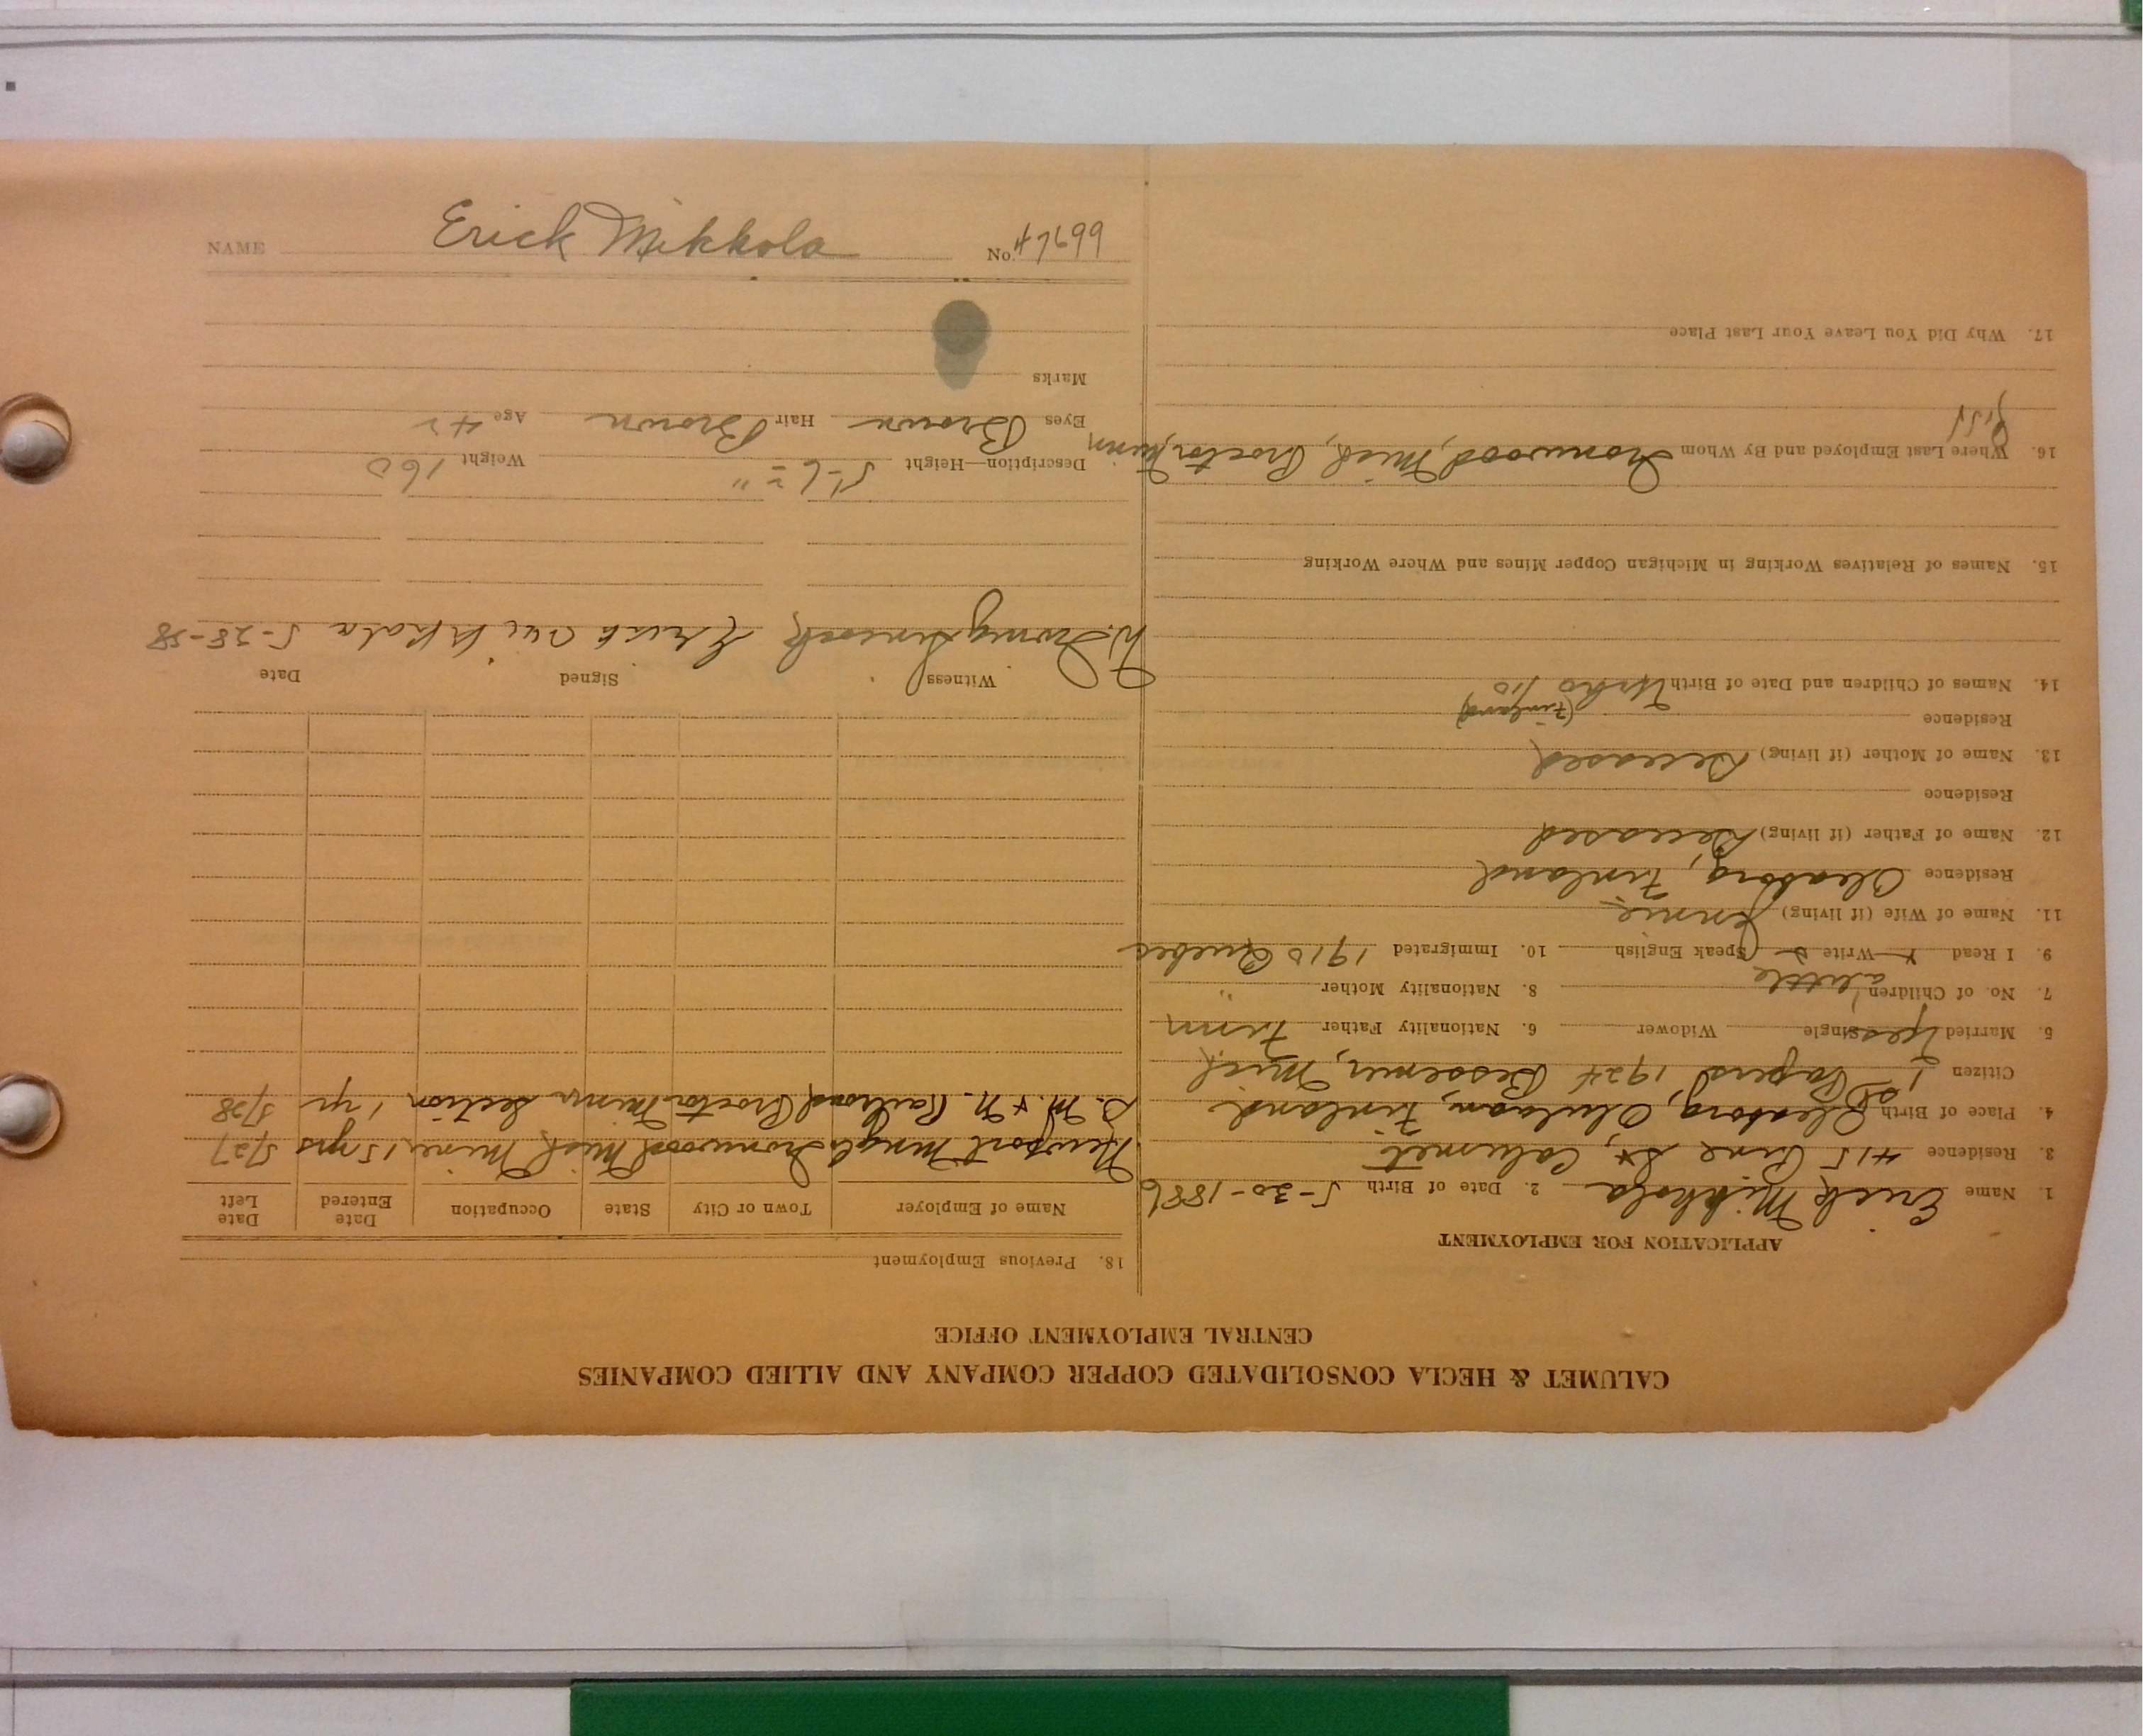 NAME Erick Mikkola No. 47699
CALUMET & HECLA CONSOLIDATED COPPER COMPANY AND ALLIED COMPANIES
CENTRAL EMPLOYMENT OFFICE
APPLICATION FOR EMPLOYMENT
1. Name Erick Mikkola 2. Date of Birth 5-30-1886
3. Residence 415 Pine St, Calumet
4. Place of Birth Uleaborg, Finland
Citizen 1st Papers 1924 Bessemer, Mich
5. Married Yes Single Widower 6. Nationality Father Finn
7. No. of Children 1 8. Nationality Mother "
a little
9. I Read Write Speak English 10. Immigrated 1910 Quebec
11. Name of Wife (if living) Jennie
Residence Uleaborg, Finland
12. Name of Father (if living) Deceased
Residence
13. Name of Mother (if living) Deceased
Residence
(Finland)
14. Names of Children and Date of Birth Urho 10
15. Names of Relatives Working in Michigan Copper Mines and Where Working
16. Where Last Employed and By Whom Ironwood, Mich, Proctor, Minn
17. Why Did You Leave Your Last Place
18. Previous Employment
Name of Employer Town or City State Occupation Date Entered Date Left
Newport Mng Co Ironwood Mich Miner 15 yrs 5/27
D. M. & N. Railroad Proctor Minn Section 1 yr 5/28
Witness Signed Date
Erick Mikkola 5-28-28
Description—Height 5-6 " Weight 160
Eyes Brown Hair Brown Age 42
Marks